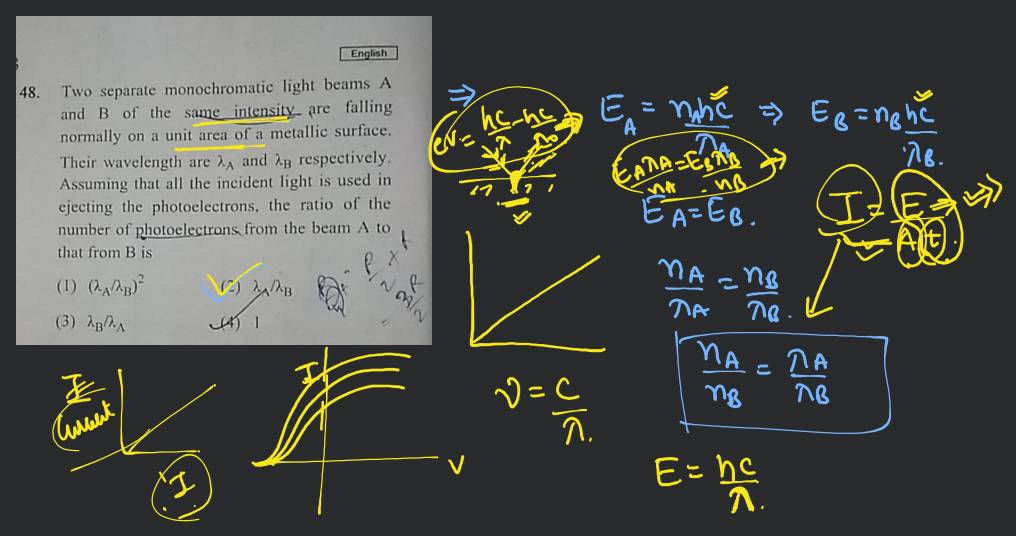 English
48. Two separate monochromatic light beams A
and B of the same intensity are falling
normally on a unit area of a metallic surface.
Their wavelength are λA and λB respectively.
Assuming that all the incident light is used in
ejecting the photoelectrons, the ratio of the
number of photoelectrons from the beam A to
that from B is
(1) (λA/λB)²
(2) λA/λB
(3) λB/λA
(4) 1
eV = hc/λ - hc/λ0
EA = nAhc/λA ⇒ EB = nBhc/λB.
EAλA/nA = EBλB/nB
EA = EB.
I = E/At.
nA/λA = nB/λB.
nA/nB = λA/λB
ν = c/λ.
E = hc/λ.
I
Current
I
I
V